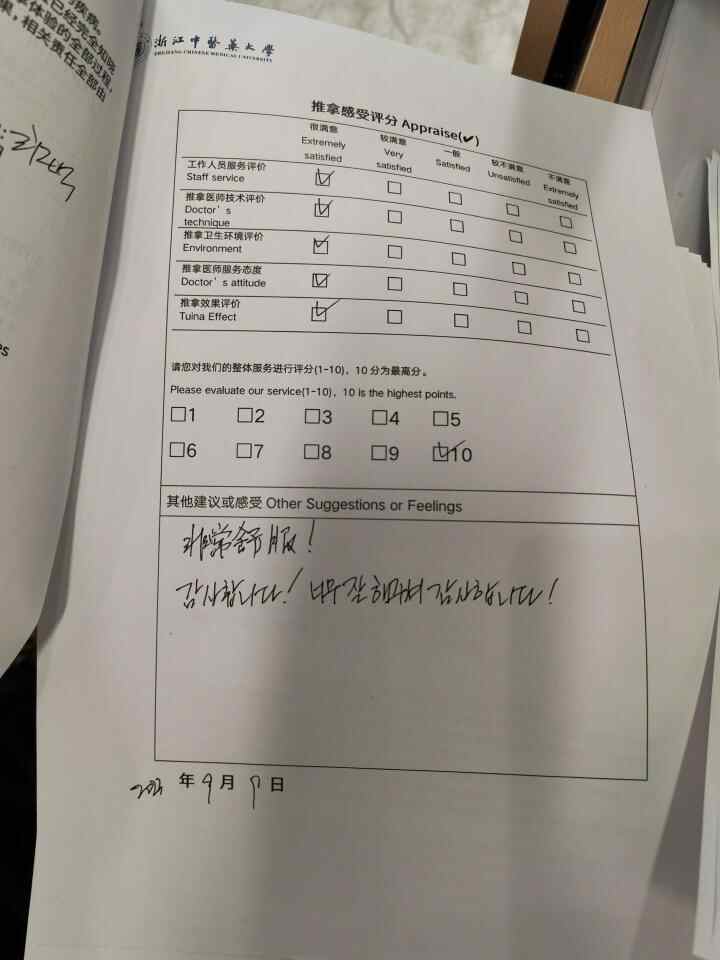 疾病。
已经完全知晓
本体验的全部过程,
果,相关责任全部由
es
浙江中医药大学
ZHEJIANG CHINESE MEDICAL UNIVERSITY
推拿感受评分 Appraise(✔)
很满意 Extremely satisfied
较满意 Very satisfied
一般 Satisfied
较不满意 Unsatisfied
不满意 Extremely satisfied
工作人员服务评价
Staff service
推拿医师技术评价
Doctor's
technique
推拿卫生环境评价
Environment
推拿医师服务态度
Doctor's attitude
推拿效果评价
Tuina Effect
请您对我们的整体服务进行评分(1-10),10 分为最高分。
Please evaluate our service(1-10), 10 is the highest points.
□1 □2 □3 □4 □5
□6 □7 □8 □9 ☑10
其他建议或感受 Other Suggestions or Feelings
非常舒服!
감사합니다! 너무 잘 해마셔 감사합니다!
年 9 月 9 日